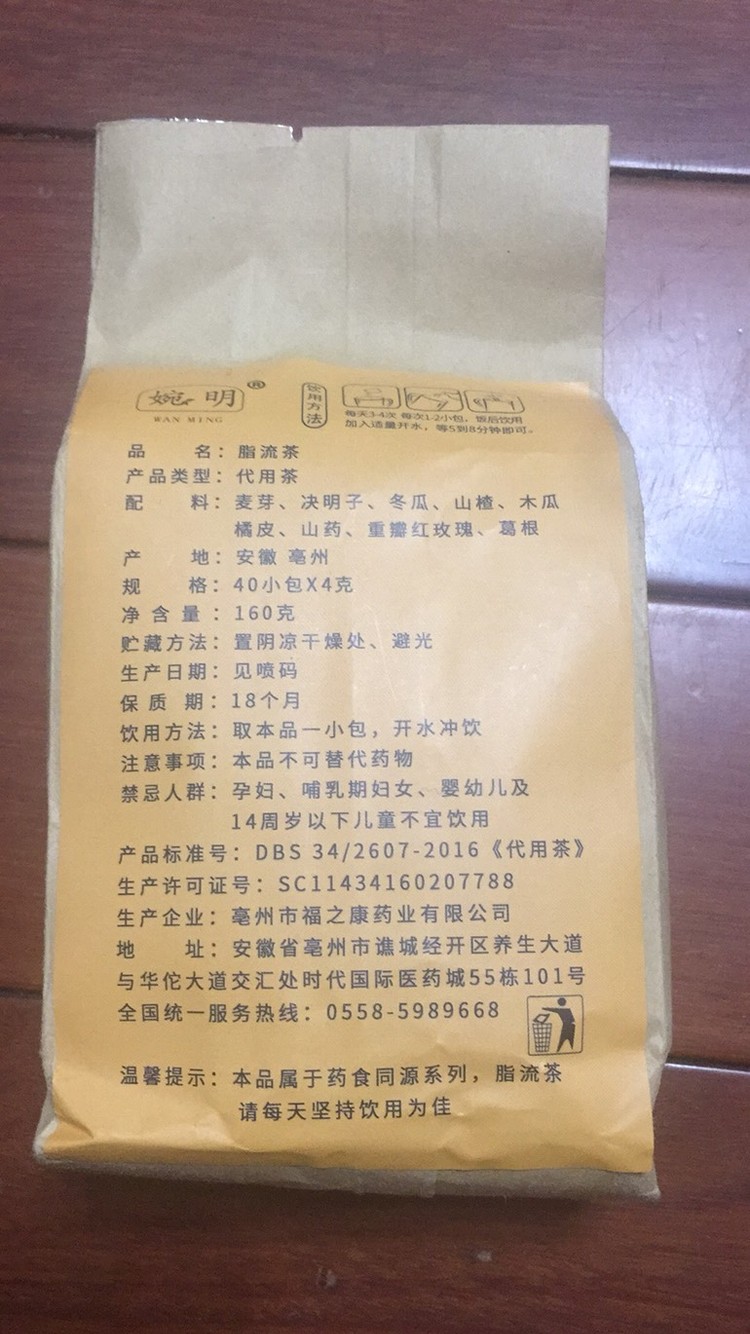 婉明®
WAN MING
饮用方法
每天3-4次 每次1-2小包，饭后饮用
加入适量开水，等5到8分钟即可。
品 名：脂流茶
产品类型：代用茶
配 料：麦芽、决明子、冬瓜、山楂、木瓜
橘皮、山药、重瓣红玫瑰、葛根
产 地：安徽 亳州
规 格：40小包X4克
净含量：160克
贮藏方法：置阴凉干燥处、避光
生产日期：见喷码
保 质 期：18个月
饮用方法：取本品一小包，开水冲饮
注意事项：本品不可替代药物
禁忌人群：孕妇、哺乳期妇女、婴幼儿及
14周岁以下儿童不宜饮用
产品标准号：DBS 34/2607-2016《代用茶》
生产许可证号：SC11434160207788
生产企业：亳州市福之康药业有限公司
地 址：安徽省亳州市谯城经开区养生大道
与华佗大道交汇处时代国际医药城55栋101号
全国统一服务热线：0558-5989668
温馨提示：本品属于药食同源系列，脂流茶
请每天坚持饮用为佳